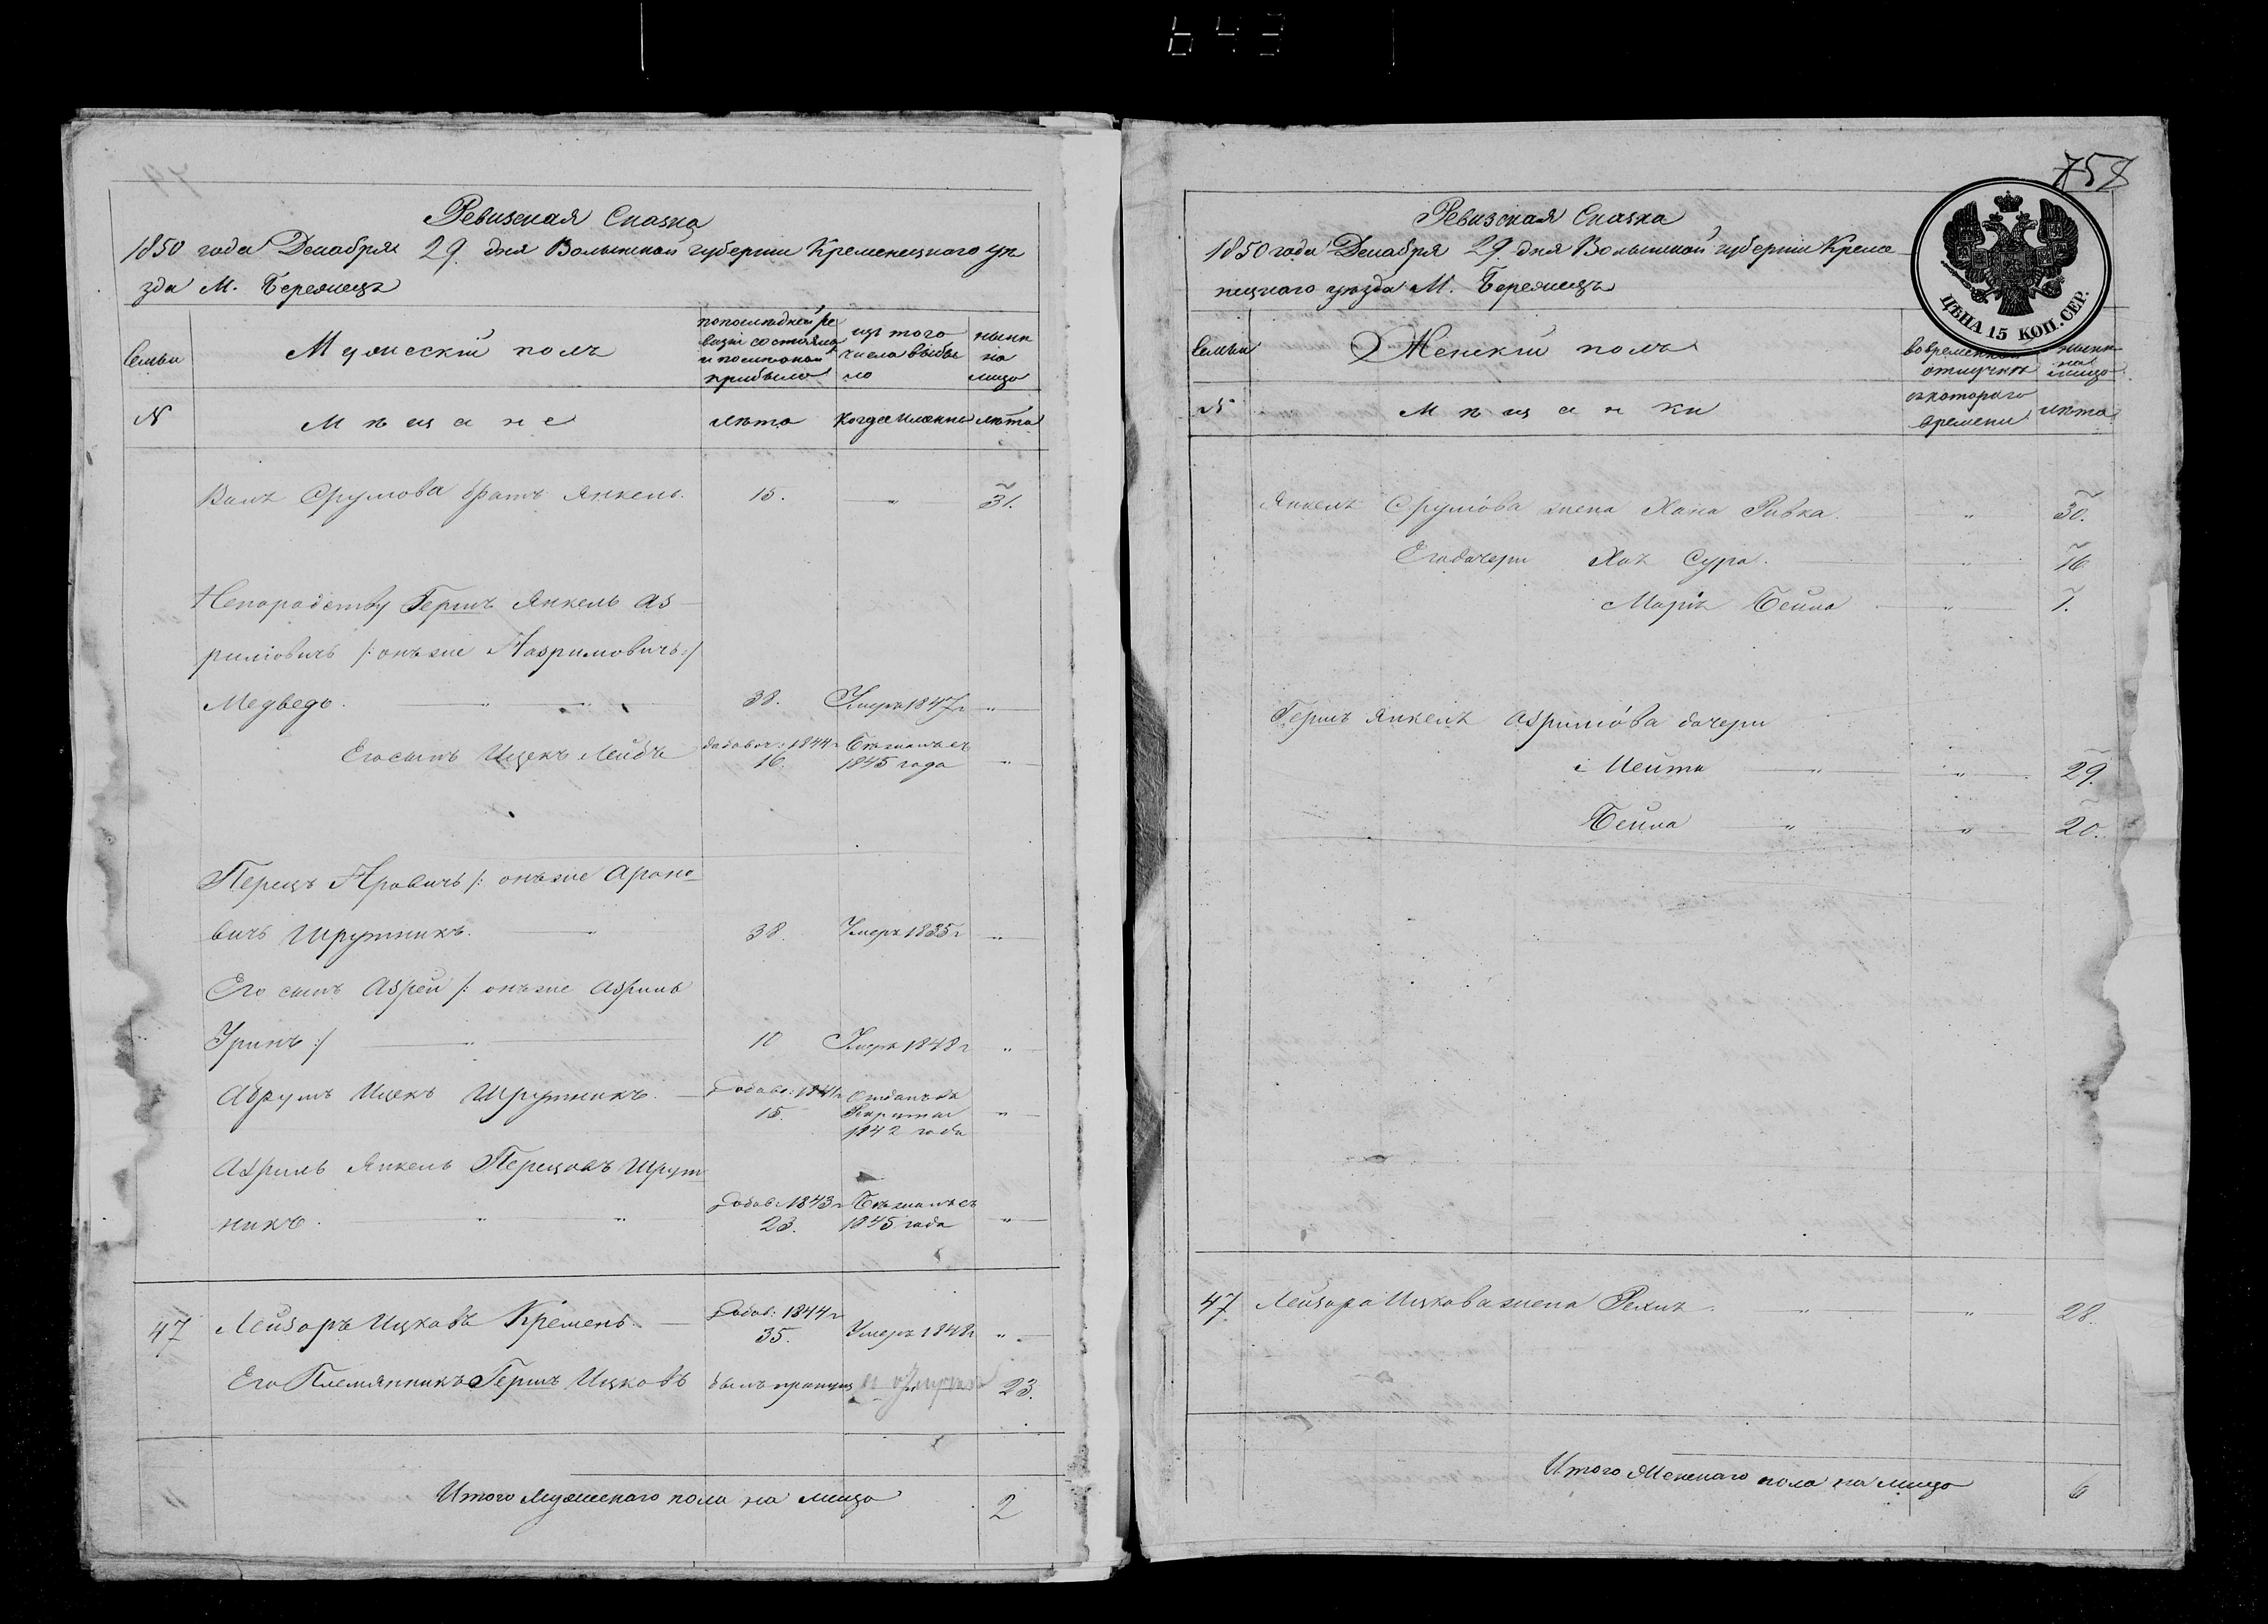 643
Ревизская Сказка
1850 года Декабря 29 дня Волынской губернии Кременецкого уѣ
зда М. Бережецъ
Семьи
Мужескій полъ
по последней ре
визіи состояло
и после оной
прибыло
изъ того
числа выбы
ло
нынѣ
на
лицо
№
Мѣщане
лѣта
когда именно
лѣта
Срулова братъ Янкель. 15. " 31.
Непорадству Гершъ Янкель Аз
риліовичъ /: онъ же
Медведь. " " 38. Умеръ 1847 г "
Его сынъ Ицекъ Лейбъ 1844 г 16. 1845 года "
Перецъ /: онъ же Ароно
вичъ Шрутникъ. " 38. Умеръ 1835 г "
Его сынъ Азрей /: онъ же Азриль
Уринъ :/ " 10 Умеръ 1848 г "
Абрумъ Ицекъ Шрутникъ. 1841 г 15. Отданъ въ
Рекруты
1842 года "
Азриль Янкель Перецовъ Шрут
никъ. " " Добав: 1843 г 23. 1845 года "
47 Лейзоръ Ицковъ Кремень. Добав: 1844 г 35. Умеръ 1848 г "
Его Племянникъ Гершъ Ицковъ былъ пропущ 23.
Итого Мужескаго пола на лицо 2
758
ЦѢНА 15 КОП. СЕР.
Ревизская Сказка
1850 года Декабря 29 дня Волынской губерніи Креме
нецкаго уѣзда М. Бережецъ
Семьи
Женскій полъ
во временной
отлучкѣ
нынѣ
на
лицо
№
Мѣщанки
съ котораго
времени
лѣта
Срулiова жена Хана Ривка " 30.
Его дочери Хая Сура. " 16
Бейла " 7.
Гершъ Янкеля Азрилiова дочери
" " 29.
Бейла " " 20.
47 Лейзора Ицкова жена " " 28.
Итого Женскаго пола на лицо 6